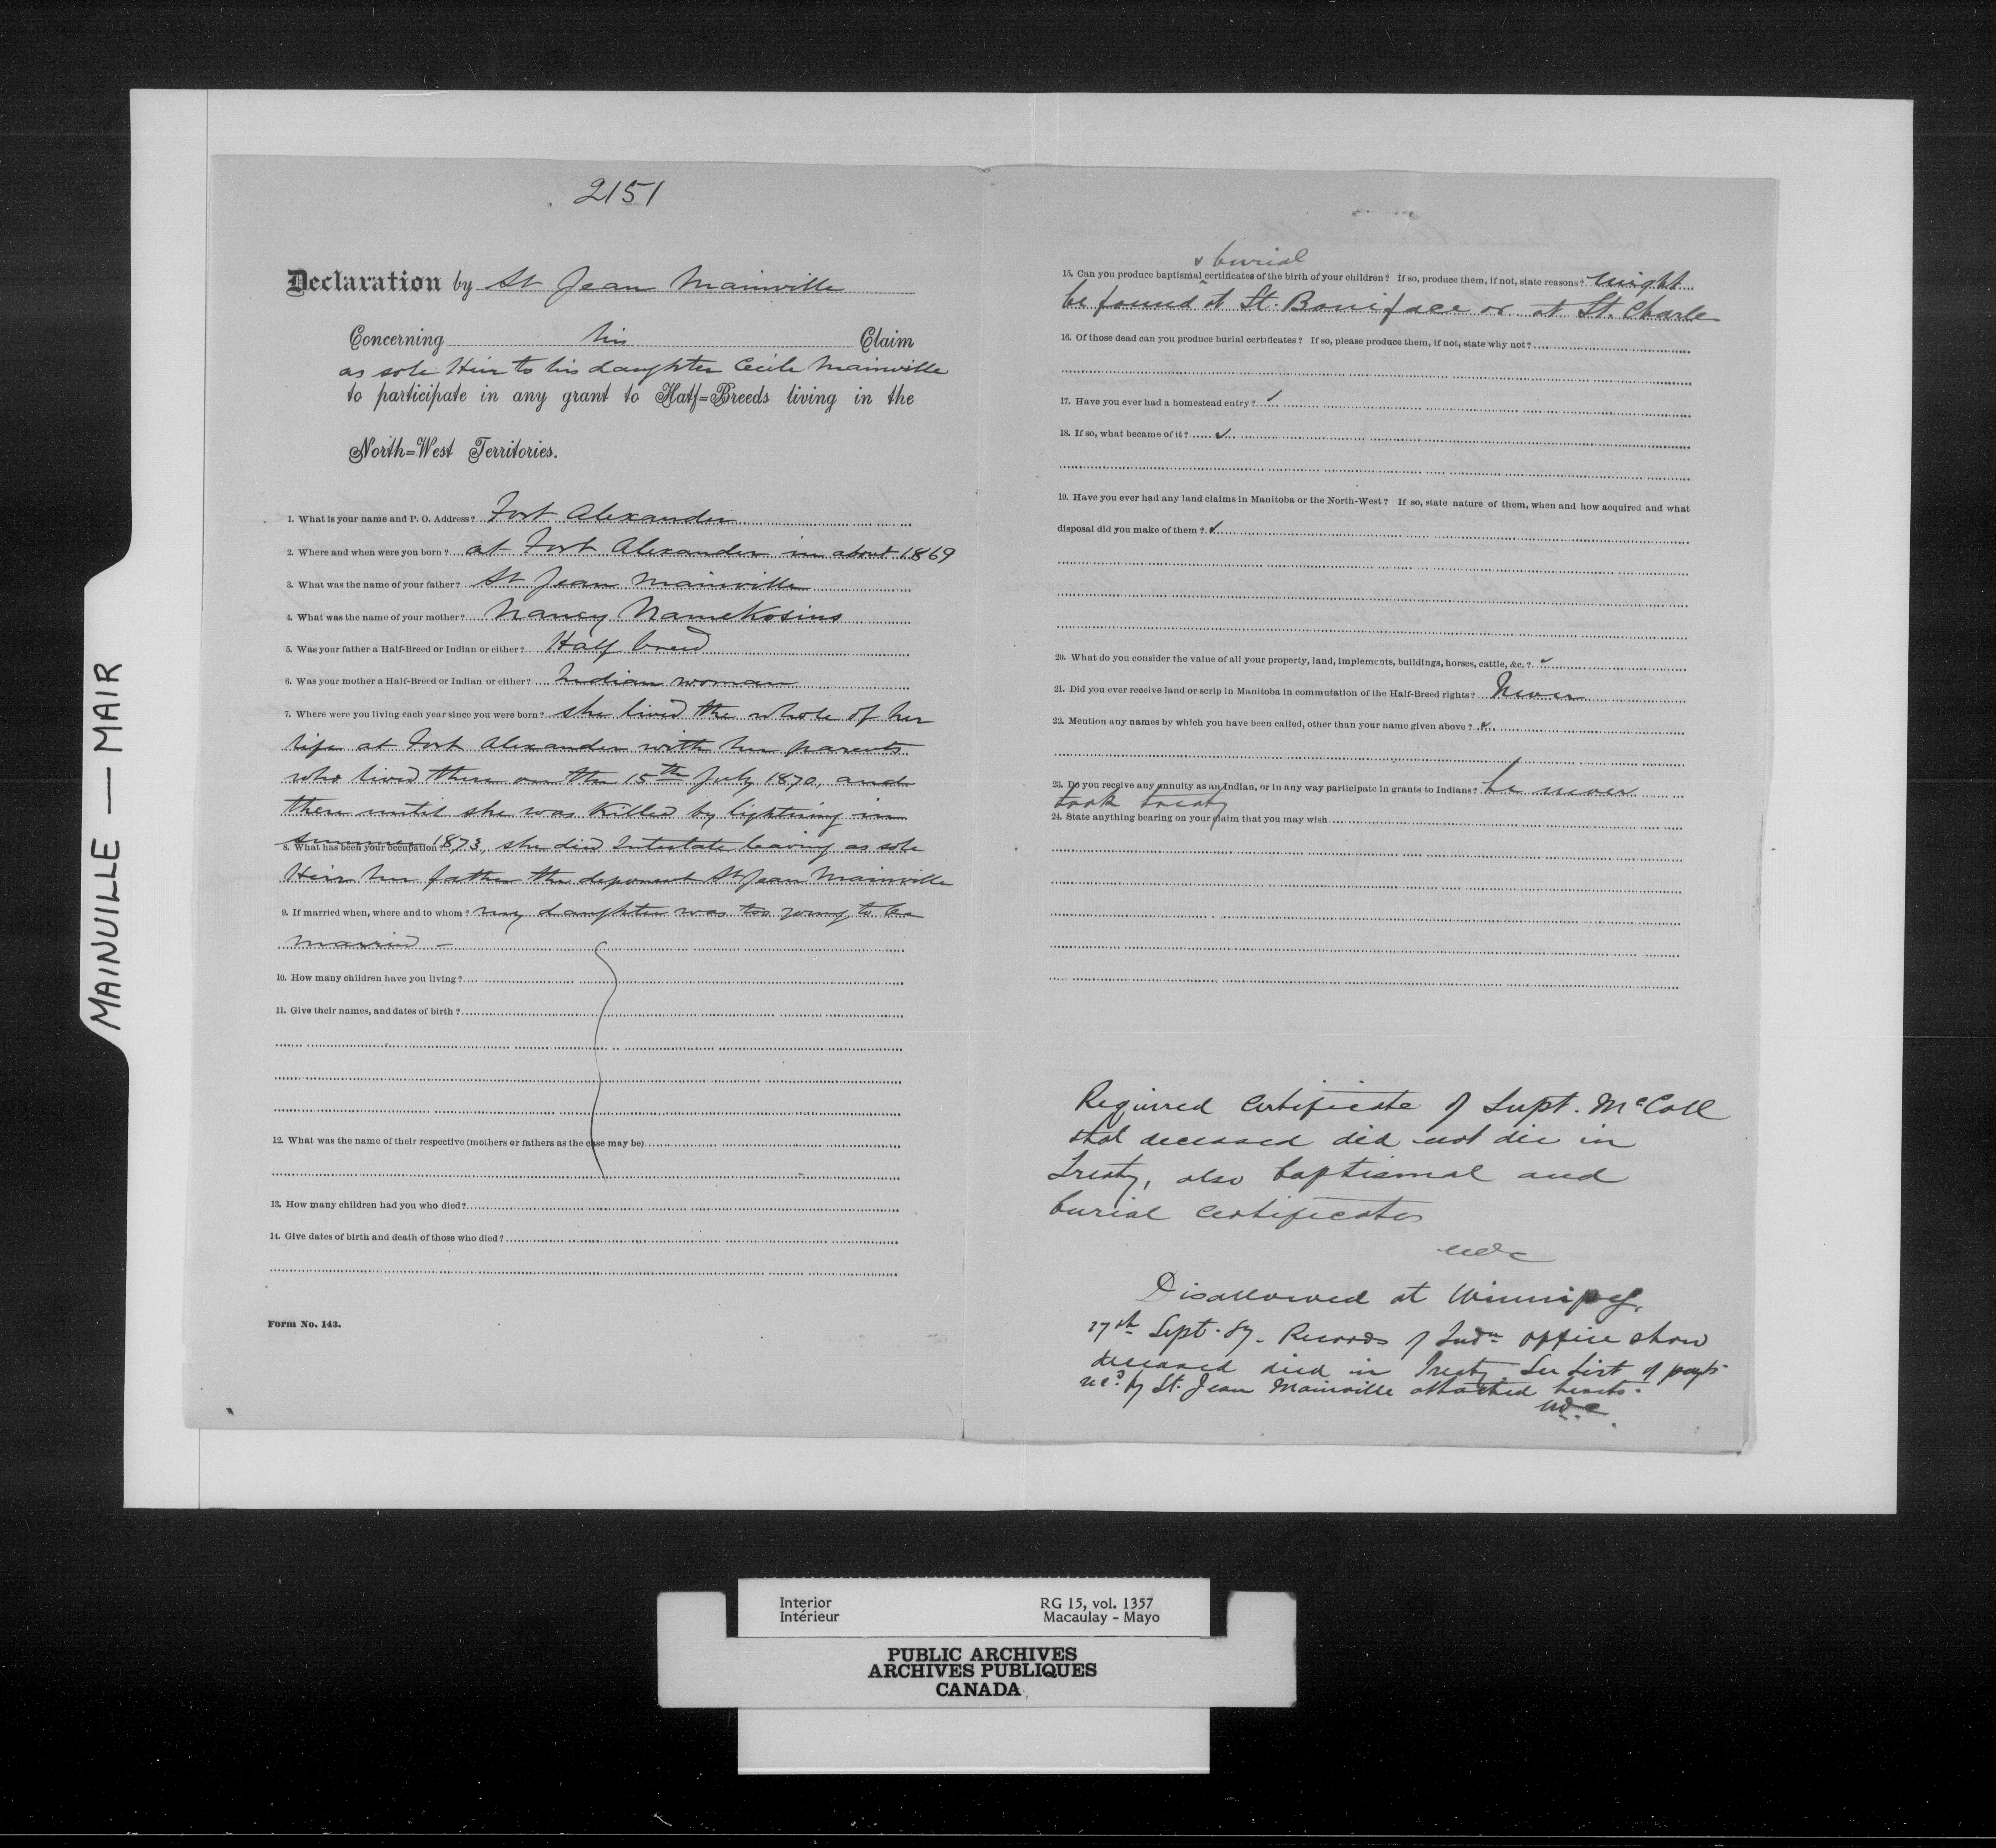 2151
Declaration by St Jean Mainville
Concerning his Claim
as sole Heir to his daughter Cecile Mainville
to participate in any grant to Half=Breeds living in the
North=West Territories.
1. What is your name and P. O. Address? Fort Alexander
2. Where and when were you born? at Fort Alexander in about 1869
3. What was the name of your father? St Jean Mainville
4. What was the name of your mother? Nancy Namekosins
5. Was your father a Half-Breed or Indian or either? Half breed
6. Was your mother a Half-Breed or Indian or either? Indian woman
7. Where were you living each year since you were born? she lived the whole of her
life at Fort Alexander with her parents
who lived there on the 15th July 1870, and
there until she was Killed by lightning in
summer 1873, she died Intestate leaving as sole
8. What has been your occupation
Heir her father the deponent St Jean Mainville
9. If married when, where and to whom? my daughter was too young to be
married –
10. How many children have you living?
11. Give their names, and dates of birth?
12. What was the name of their respective (mothers or fathers as the case may be)
13. How many children had you who died?
14. Give dates of birth and death of those who died?
Form No. 143.
& burial
15. Can you produce baptismal certificates of the birth of your children? If so, produce them, if not, state reasons? might
be found at St. Boniface or at St. Charle
16. Of those dead can you produce burial certificates? If so, please produce them, if not, state why not?
17. Have you ever had a homestead entry? ✓
18. If so, what became of it? ✓
19. Have you ever had any land claims in Manitoba or the North-West? If so, state nature of them, when and how acquired and what
disposal did you make of them? ✓
20. What do you consider the value of all your property, land, implements, buildings, horses, cattle, &c.? ✓
21. Did you ever receive land or scrip in Manitoba in commutation of the Half-Breed rights? Never
22. Mention any names by which you have been called, other than your name given above? ✓
23. Do you receive any annuity as an Indian, or in any way participate in grants to Indians? he never
took treaty
24. State anything bearing on your claim that you may wish
Required Certificate of Supt. McColl
that deceased did not die in
Treaty, also baptismal and
burial Certificates
Disallowed at Winnipeg,
27th Sept. 87. Records of Indn office show
deceased died in Treaty. See List of payts
recd by St. Jean Mainville attached hereto.
MAINVILLE — MAIR
Interior
Intérieur
RG 15, vol. 1357
Macaulay - Mayo
PUBLIC ARCHIVES
ARCHIVES PUBLIQUES
CANADA